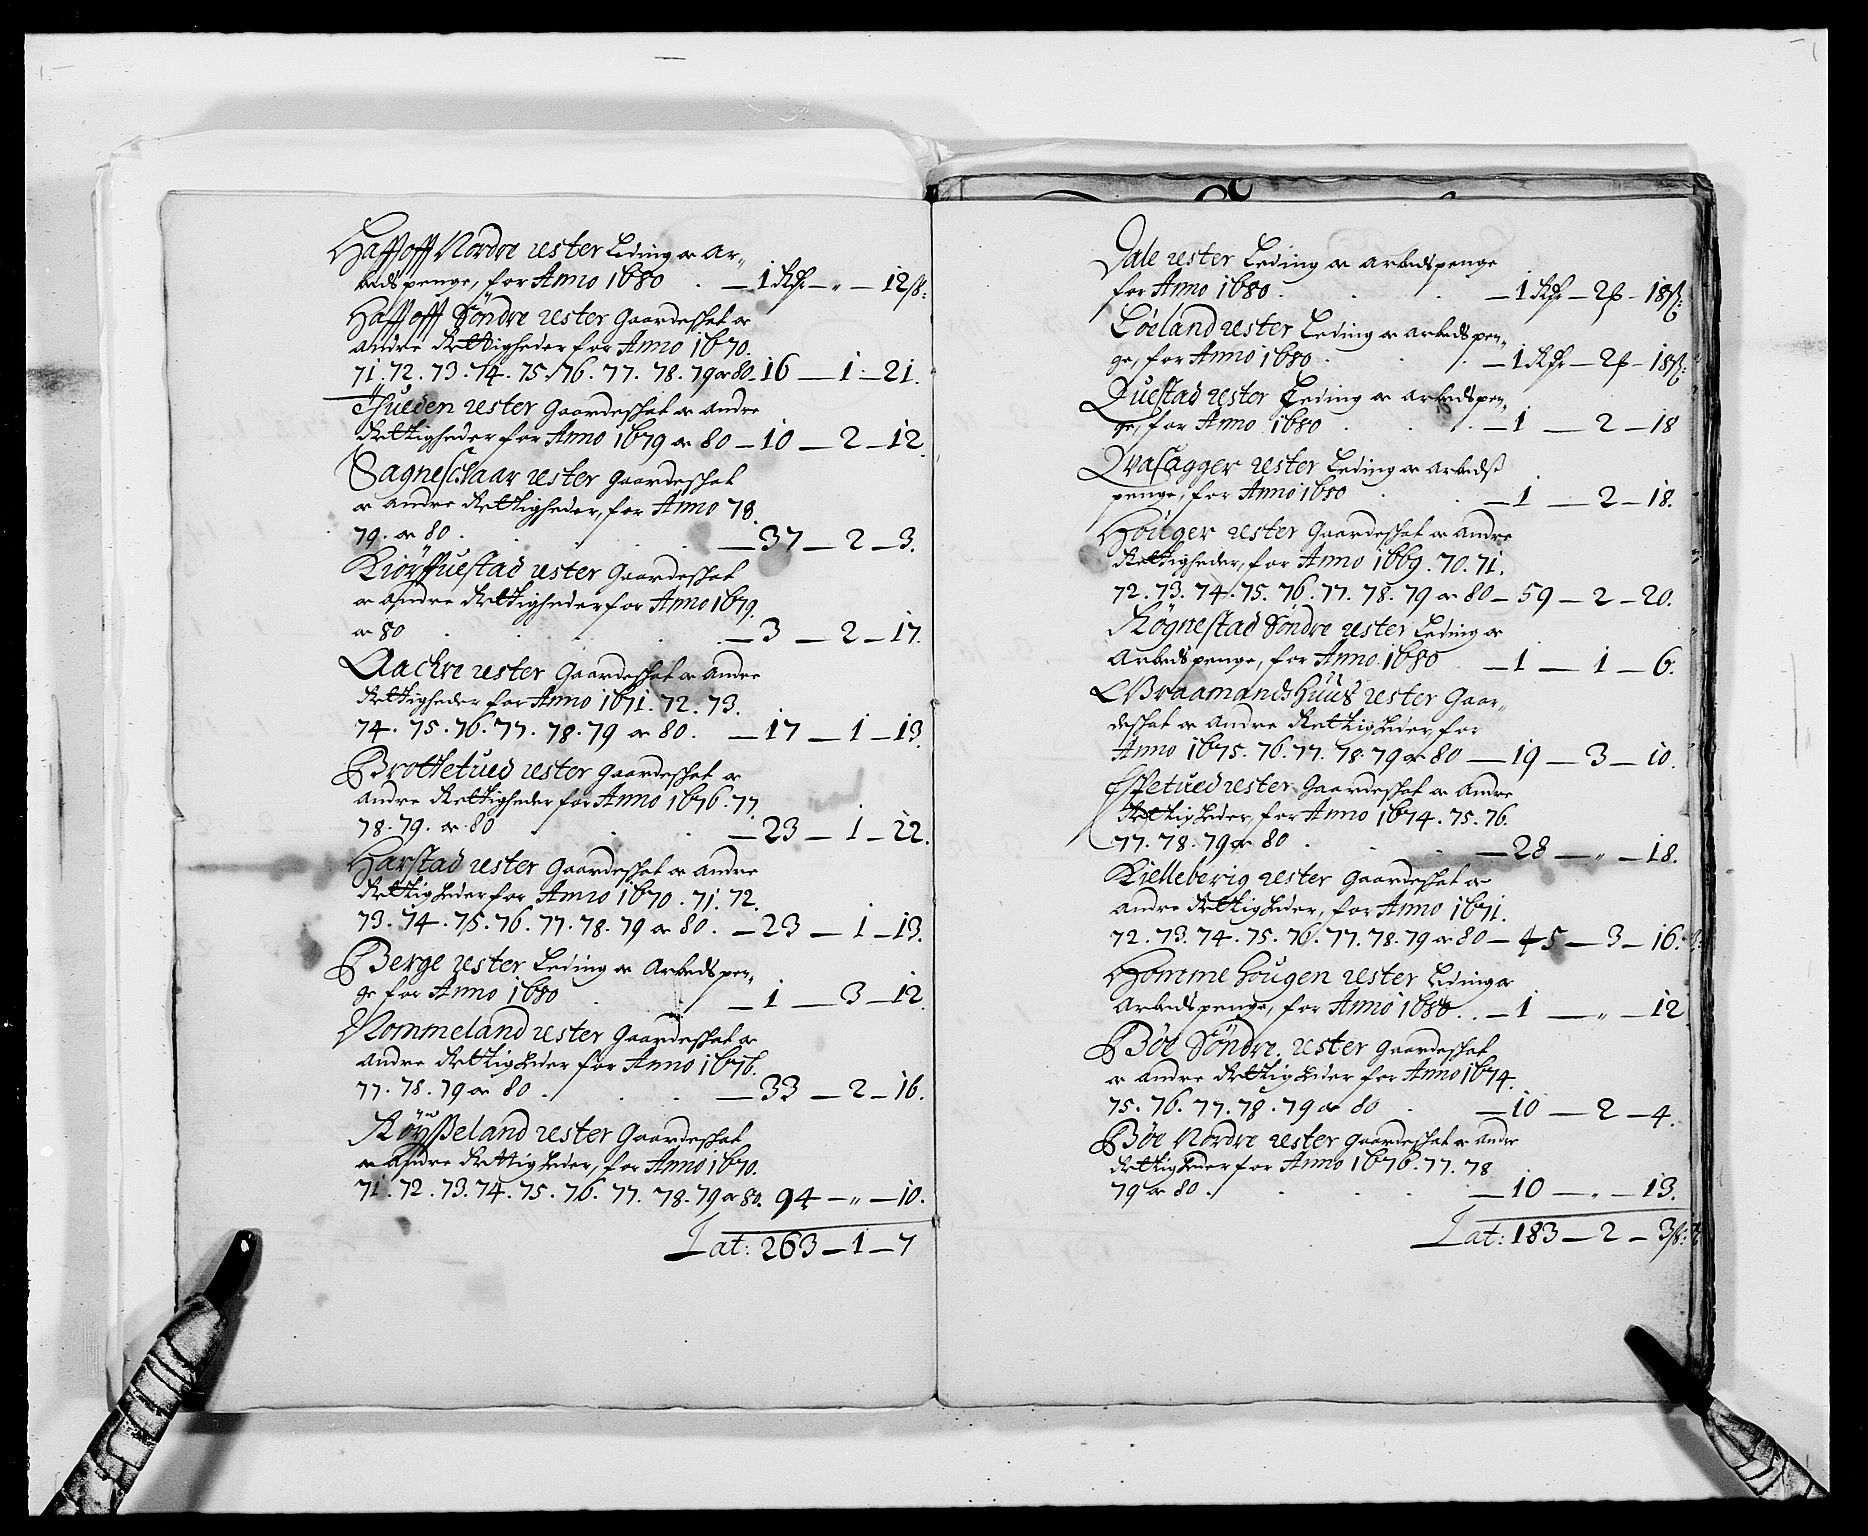 Haffoff Nordre rester Leding oc Ar-
bedspenge, for Anno 1680 . — 1 Rdr — „ — 12 ß:
Haffoff Söndre rester Gaardeschat oc
andre Rettigheder for Anno 1670.
71. 72. 73. 74. 75. 76. 77. 78. 79 oc 80 — 16 — 1 — 21.
Thueden rester Gaardeschat oc andre
Rettigheder for Anno 1679 oc 80 — 10 — 2 — 12.
rester Gaardeschat
oc andre Rettigheder, for Anno 78.
79. oc 80 . — 37 — 2 — 3.
rester Gaardeschat
oc andre Rettigheder for Anno 1679.
oc 80 — 3 — 2 — 17.
Aachre rester Gaardeschat oc Andre
Rettigheder for Anno 1671. 72. 73.
74. 75. 76. 77. 78. 79 oc 80. — 17 — 1 — 13.
Brottetued rester Gaardeschat oc
andre Rettigheder for Anno 1676. 77.
78. 79. oc 80 — 23 — 1 — 22.
Harstad rester Gaardeschat oc Andre
Rettigheder for Anno 1670. 71. 72.
73. 74. 75. 76. 77. 78. 79 oc 80. — 23 — 1 — 13.
Berge rester Leding oc Arbedspen-
ge for Anno 1680 — 1 — 3 — 12
Nommeland rester Gaardeschat oc
andre Rettigheder for Anno 1676.
77. 78. 79 oc 80 . — 33 — 2 — 16.
Röÿsseland rester Gaardeschat
oc Andre Rettigheder, for Anno 1670.
71. 72. 73. 74. 75. 76. 77. 78. 79 oc 80. 94 — „ — 10.
Lat: 263 — 1 — 7
Dale rester Leding oc Arbedspenge
for Anno 1680 . — 1 Rdr — 2 — 18 ß:
Löeland rester Leding oc Arbedspen-
ge, for Anno 1680 . — 1 Rdr — 2 — 18 ß:
Questad rester Leding oc Arbedspen-
ge, for Anno 1680 . — 1 — 2 — 18
rester Leding oc Arbeds
penge, for Anno 1680 — 1 — 2 — 18.
rester Gaardeschat oc Andre
Rettigheder, for Anno 1669. 70. 71.
72. 73. 74. 75. 76. 77. 78. 79 oc 80 — 59 — 2 — 20.
Rögnestad Söndre rester Leding oc
Arbedspenge, for Anno 1680 — 1 — 1 — 6.
rester Gaar-
deschat oc Andre Rettigheder, for
Anno 1675. 76. 77. 78. 79 oc 80 — 19 — 3 — 10.
Espetued rester Gaardeschat oc Andre
Rettigheder, for Anno 1674. 75. 76.
77. 78. 79 oc 80 . — 28 — „ — 18.
Kielleberig rester Gaardeschat oc
andre Rettigheder, for Anno 1671.
72. 73. 74. 75. 76. 77. 78. 79 oc 80 — 45 — 3 — 16.
Homme hougen rester Leding oc
Arbedspenge, for Anno 1680 . . — 1 — „ — 12
Böe Söndre. rester Gaardeschat
oc andre Rettigheder for Anno 1674.
75. 76. 77. 78. 79 oc 80 — 10 — 2 — 4.
Böe Nordre rester Gaardeschat oc Andre
Rettigheder for Anno 1676. 77. 78
79 oc 80 . — 10 — „ — 13.
Lat: 183 — 2 — 3 ß: